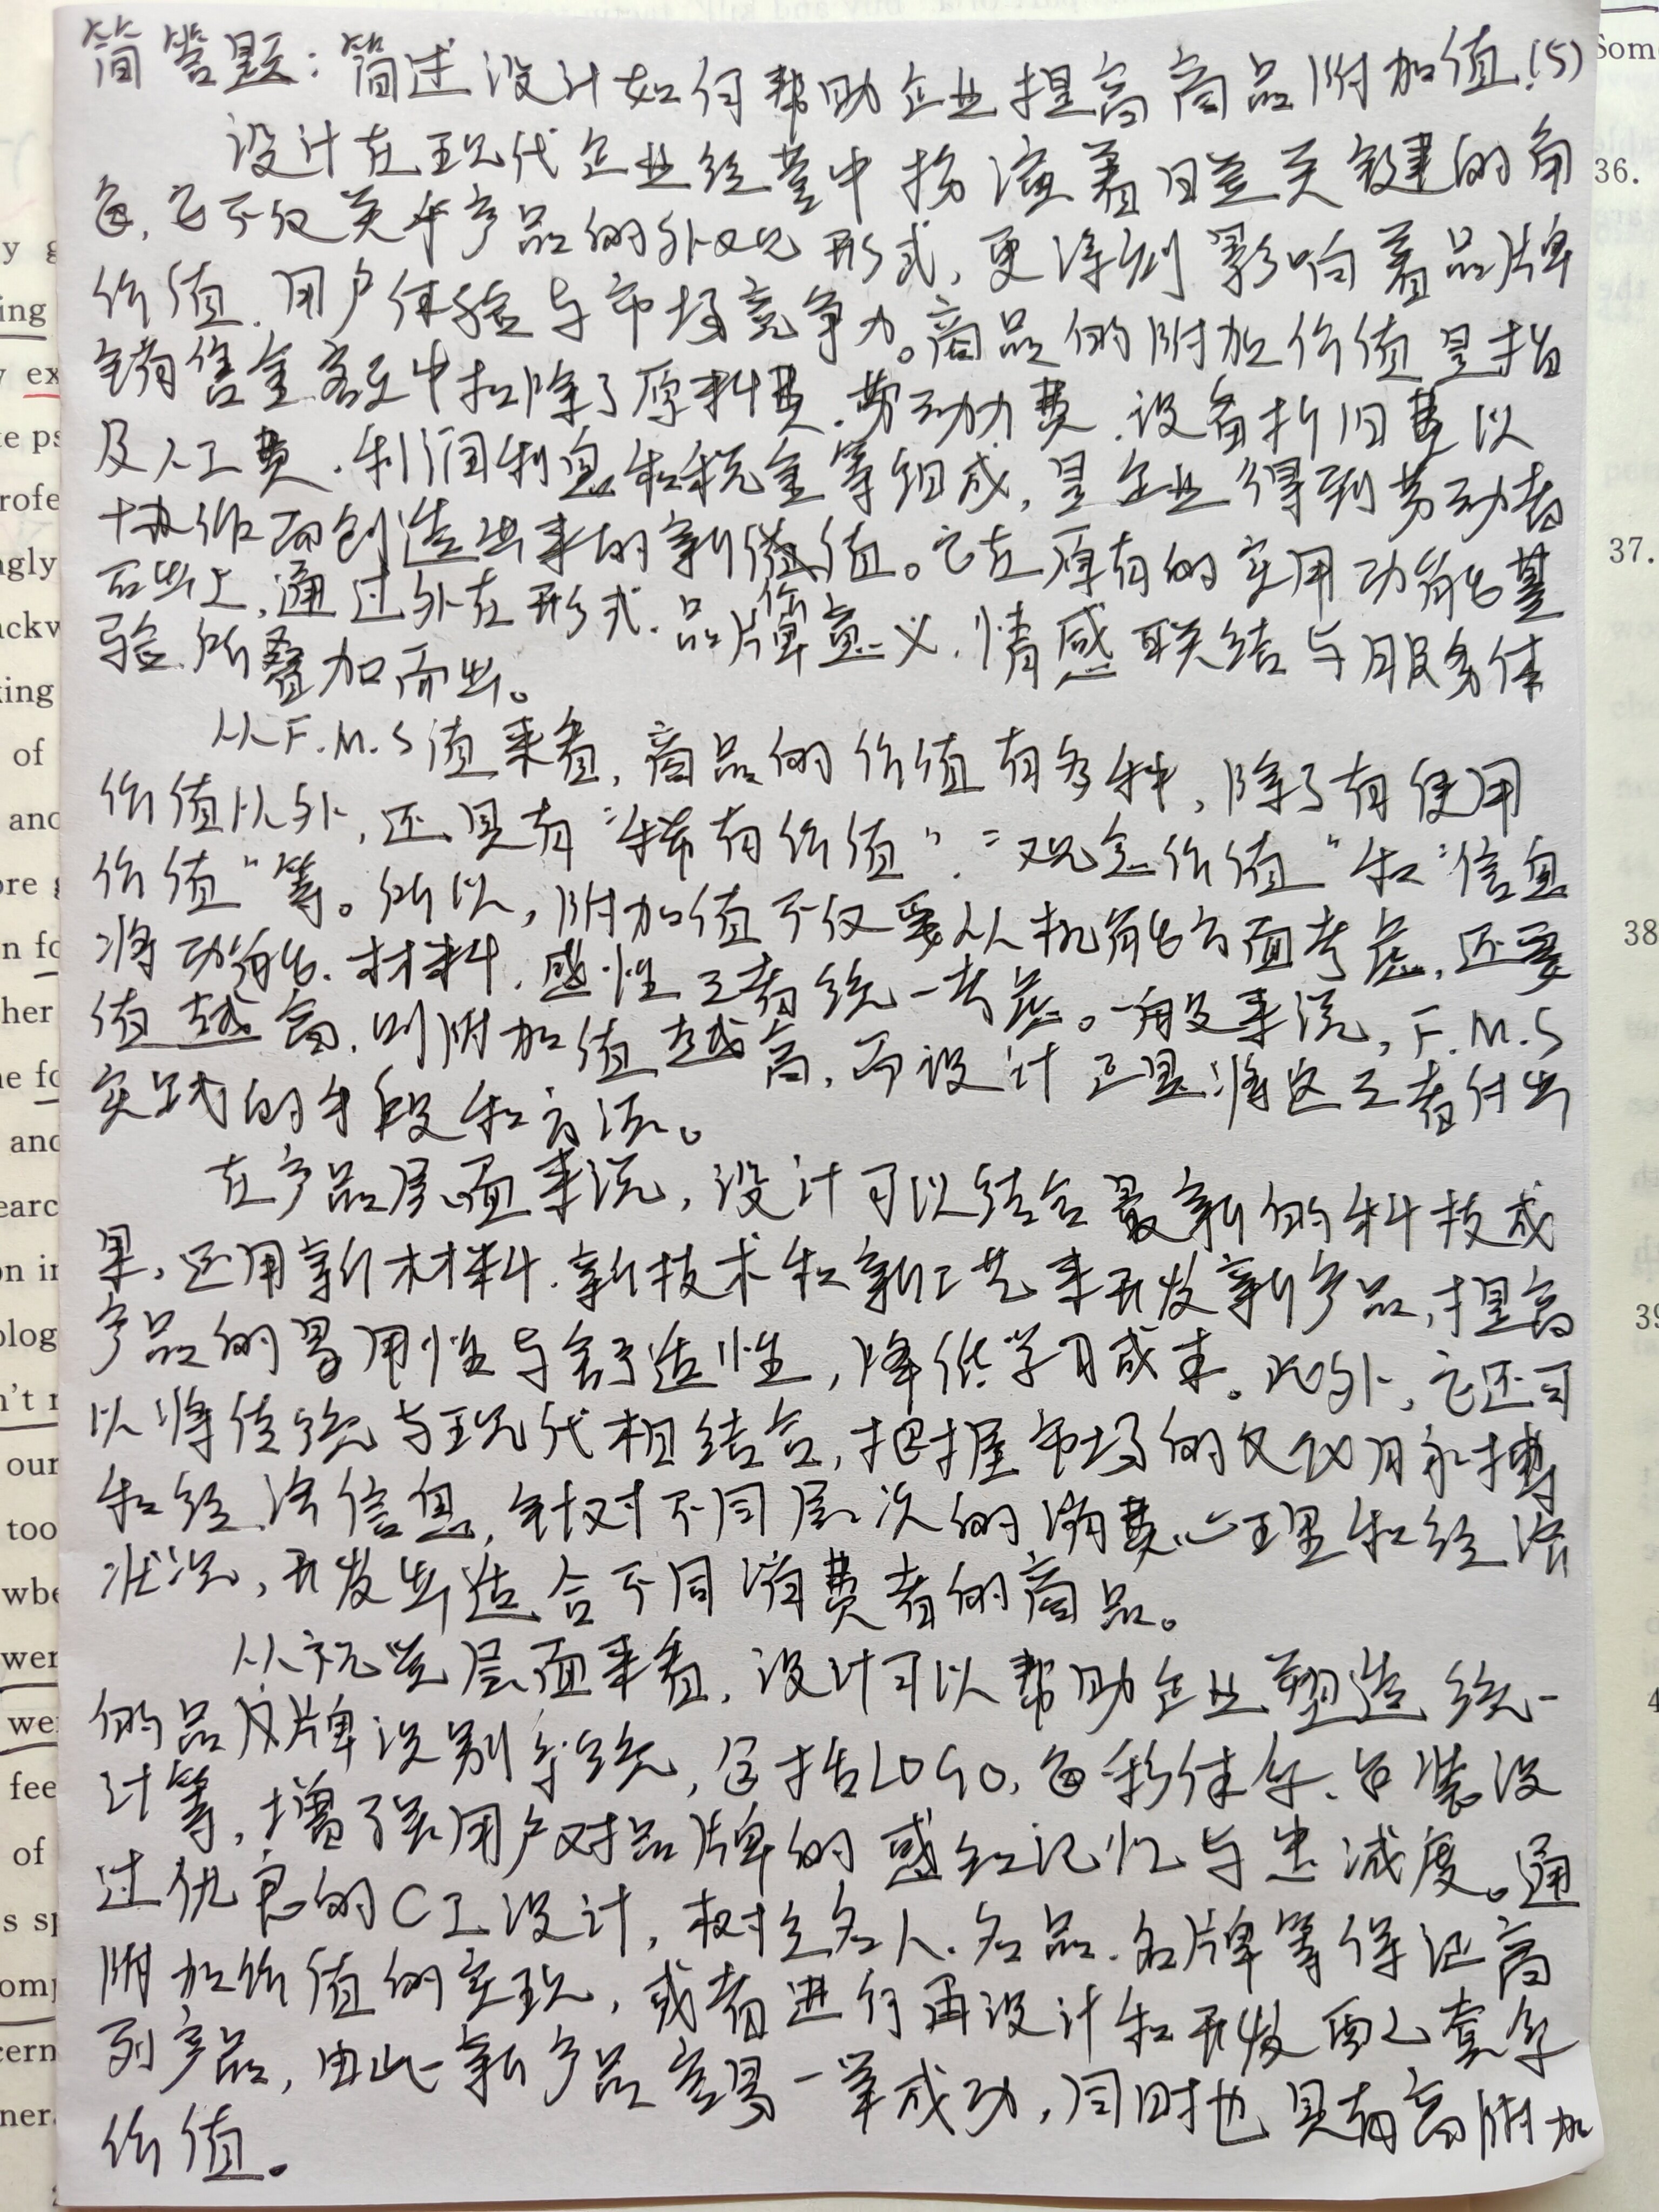 简答题：简述设计如何帮助企业提高商品附加值.(5)
设计在现代企业经营中扮演着日益关键的角
色，它不仅关乎产品的外观形式，更深刻影响着品牌
价值、用户体验与市场竞争力。商品的附加价值是指
销售金额中扣除了原料费、劳动力费、设备折旧费以
及人工费、利润利息和税金等组成，是企业得到劳动者
协作而创造出来的新价值。它在原有的实用功能基
础上，通过外在形式、品牌意义、情感联结与服务体
验所叠加而出。
从F.M.S值来看，商品的价值有多种，除了有使用
价值以外，还具有“稀有价值”、“观念价值”和“信息
价值”等。所以，附加值不仅要从机能方面考虑，还要
将功能、材料、感性三者统一考虑。一般来说，F.M.S
值越高，则附加值越高，而设计正是将这三者付出
实践的手段和方法。
在产品层面来说，设计可以结合最新的科技成
果，运用新材料、新技术和新工艺来开发新产品，提高
产品的易用性与舒适性，降低学习成本。此外，它还可
以将传统与现代相结合，把握市场的
和经济信息，针对不同层次的消费心理和经济
状况，开发出适合不同消费者的商品。
从视觉层面来看，设计可以帮助企业塑造统一
的品牌识别系统，包括LOGO、色彩体系、包装设
计等，增强用户对品牌的感知记忆与忠诚度。通
过优良的CI设计，树立名人、名品、名牌等保证高
附加价值的实现，或者进行再设计和开发配套系
列产品，由此新产品容易一举成功，同时也具有高附加
价值。
36.
37.
38
Som
ing
of
and
her
and
our
too
fee
of